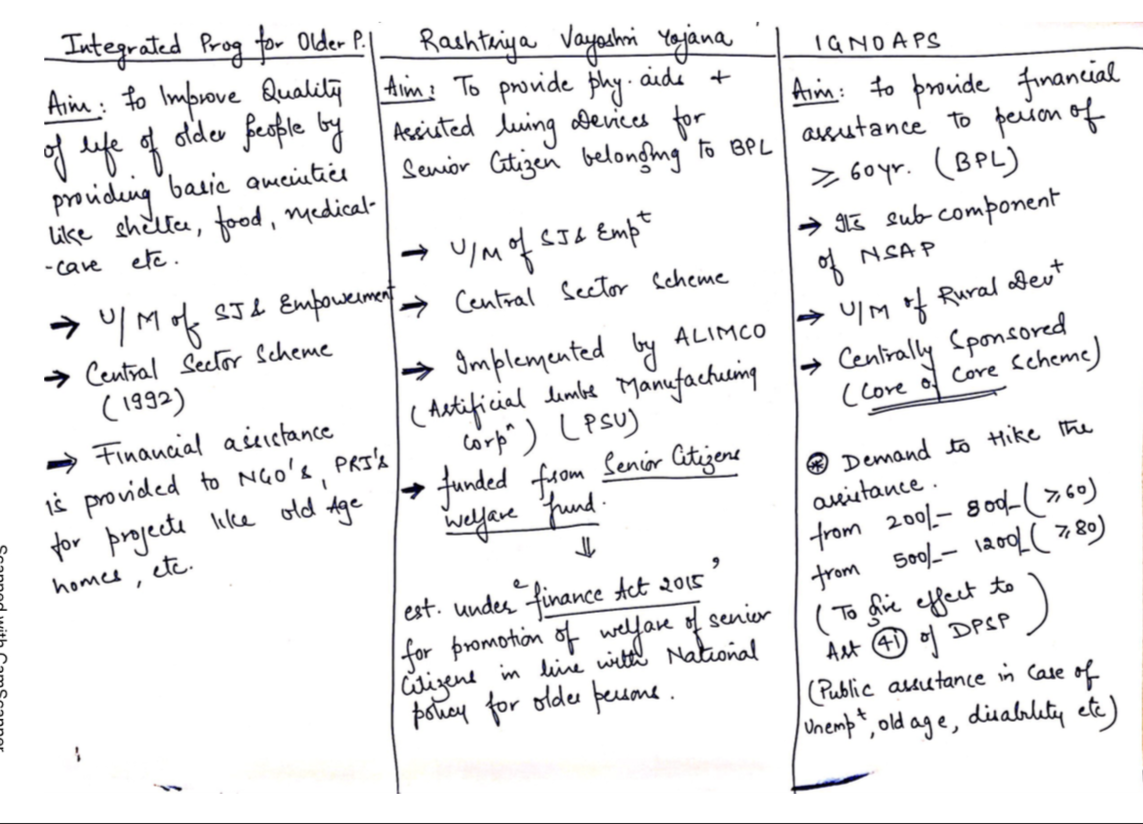 Integrated Prog for Older P.
Aim: To Improve Quality
of life of older people by
providing basic amenities
like shelter, food, medical-
-care etc.
→ U/M of SJ & Empowerment
→ Central Sector Scheme
(1992)
→ Financial assistance
is provided to NGO's, PRI's
for projects like old Age
homes, etc.
Rashtriya Vayoshri Yojana
Aim: To provide phy. aids +
Assisted living Devices for
Senior Citizen belonging to BPL
→ U/M of SJ & Empt
→ Central Sector Scheme
→ Implemented by ALIMCO
(Artificial limbs Manufacturing
Corpn) (PSU)
→ funded from Senior Citizens
welfare fund.
⇓
est. under 'finance Act 2015'
for promotion of welfare of senior
Citizens in line with National
policy for older persons.
IGNOAPS
Aim: to provide financial
assistance to person of
≥ 60yr. (BPL)
→ Its sub component
of NSAP
→ U/M of Rural Devt
→ Centrally Sponsored
(Core of Core Scheme)
⊛ Demand to Hike the
assistance.
from 200/- – 800/- (≥60)
from 500/- – 1200/- (≥80)
(To give effect to
Art 41 of DPSP)
(Public assistance in case of
Unempt, old age, disability etc)
Scanned with CamScanner